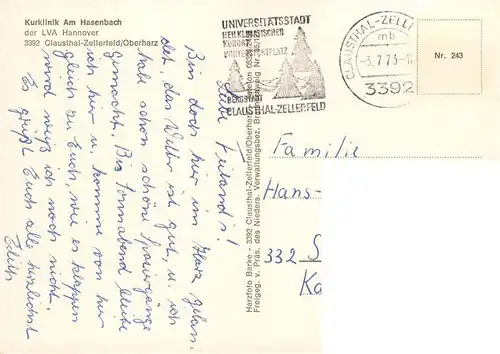 Kurklinik Am Hasenbach
der LVA Hannover
3392 Clausthal-Zellerfeld/Oberharz
UNIVERSITÄTSSTADT
HEILKLIMATISCHER
KURORT
WINTERSPORTPLATZ
BERGSTADT
CLAUSTHAL-ZELLERFELD
CLAUSTHAL-ZELLE
mb
-3.7.73-1
3392
Nr. 243
Liebe
Bin doch hier im Harz gelan-
det, das Wetter ist gut, u. ich
habe schon schöne Spaziergänge
gemacht. Bis Sonnabend bleibe
ich hier u. komme von hier
gleich zu Euch, wie es klappen
wird weiß ich noch nicht.
Es grüßt Euch alle herzlichst
Edith
Harzfoto Barke - 3392 Clausthal-Zellerfeld/Oberharz
Freigeg. v. Präs. des Nieders. Verwaltungsbez. Braunschweig
Familie
Hans-
332 S
Ka